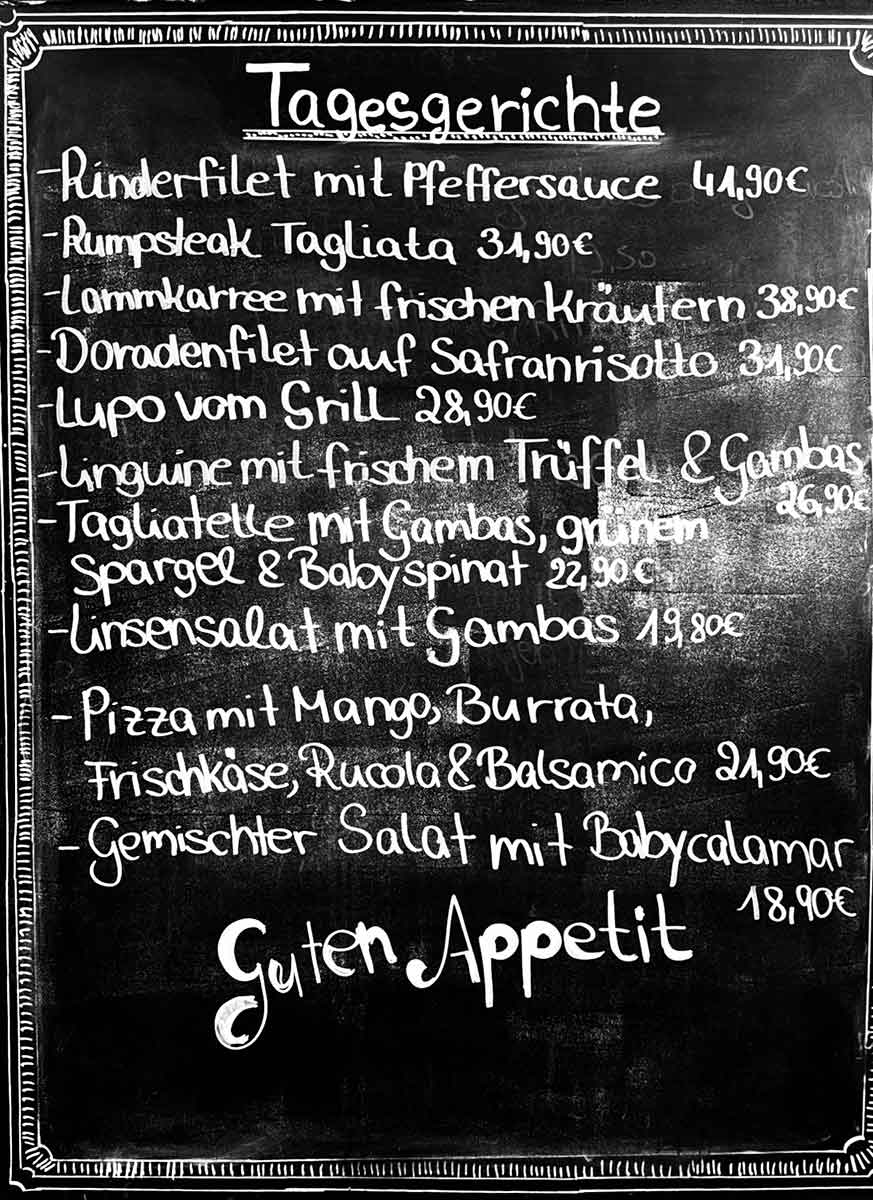 Tagesgerichte
- Rinderfilet mit Pfeffersauce 41,90€
- Rumpsteak Tagliata 31,90€
- Lammkarree mit frischen Kräutern 38,90€
- Doradenfilet auf Safranrisotto 31,90€
- Lupo vom Grill 28,90€
- Linguine mit frischem Trüffel & Gambas
26,90€
- Tagliatelle mit Gambas, grünem
Spargel & Babyspinat 22,90€
- Linsensalat mit Gambas 19,80€
- Pizza mit Mango, Burrata,
Frischkäse, Rucola & Balsamico 21,90€
- Gemischter Salat mit Babycalamar
18,90€
Guten Appetit